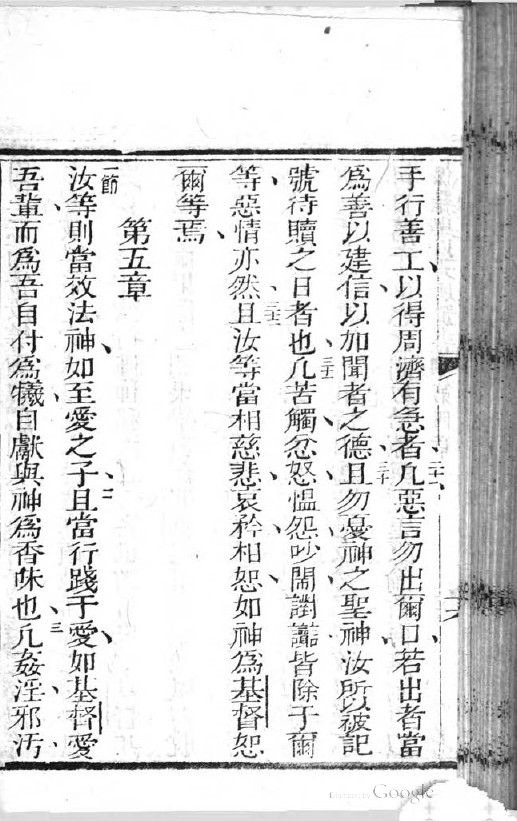 手行善工、以得周濟有急者、二十九凡惡言勿出爾口、若出者當
為善以建信、以加聞者之德、三十且勿憂神之聖神、汝所以被記
號待贖之日者也、三十一凡苦觸忿怒慍怨吵鬧讟讟皆除于爾
等、惡情亦然、三十二且汝等當相慈悲、哀矜、相恕、如神為基督恕
爾等焉、
第五章
一節汝等則當效法神、如至愛之子、二且當行踐于愛、如基督愛
吾輩、而為吾自付為犧、自獻與神、為香味也、三凡姦淫、邪汚、
Digitized by Google